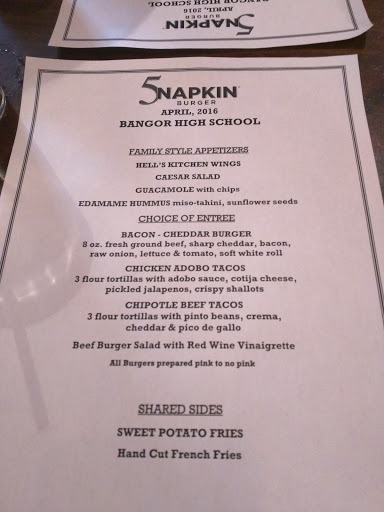 BANGOR HIGH SCHOOL
APRIL, 2016
BURGER
5NAPKIN
5NAPKIN
BURGER
APRIL, 2016
BANGOR HIGH SCHOOL
FAMILY STYLE APPETIZERS
HELL'S KITCHEN WINGS
CAESAR SALAD
GUACAMOLE with chips
EDAMAME HUMMUS miso-tahini, sunflower seeds
CHOICE OF ENTREE
BACON - CHEDDAR BURGER
8 oz. fresh ground beef, sharp cheddar, bacon,
raw onion, lettuce & tomato, soft white roll
CHICKEN ADOBO TACOS
3 flour tortillas with adobo sauce, cotija cheese,
pickled jalapenos, crispy shallots
CHIPOTLE BEEF TACOS
3 flour tortillas with pinto beans, crema,
cheddar & pico de gallo
Beef Burger Salad with Red Wine Vinaigrette
All Burgers prepared pink to no pink
SHARED SIDES
SWEET POTATO FRIES
Hand Cut French Fries